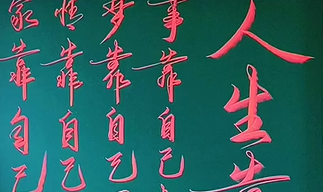 人生
事靠自己
梦靠自己
情靠自己
家靠自己